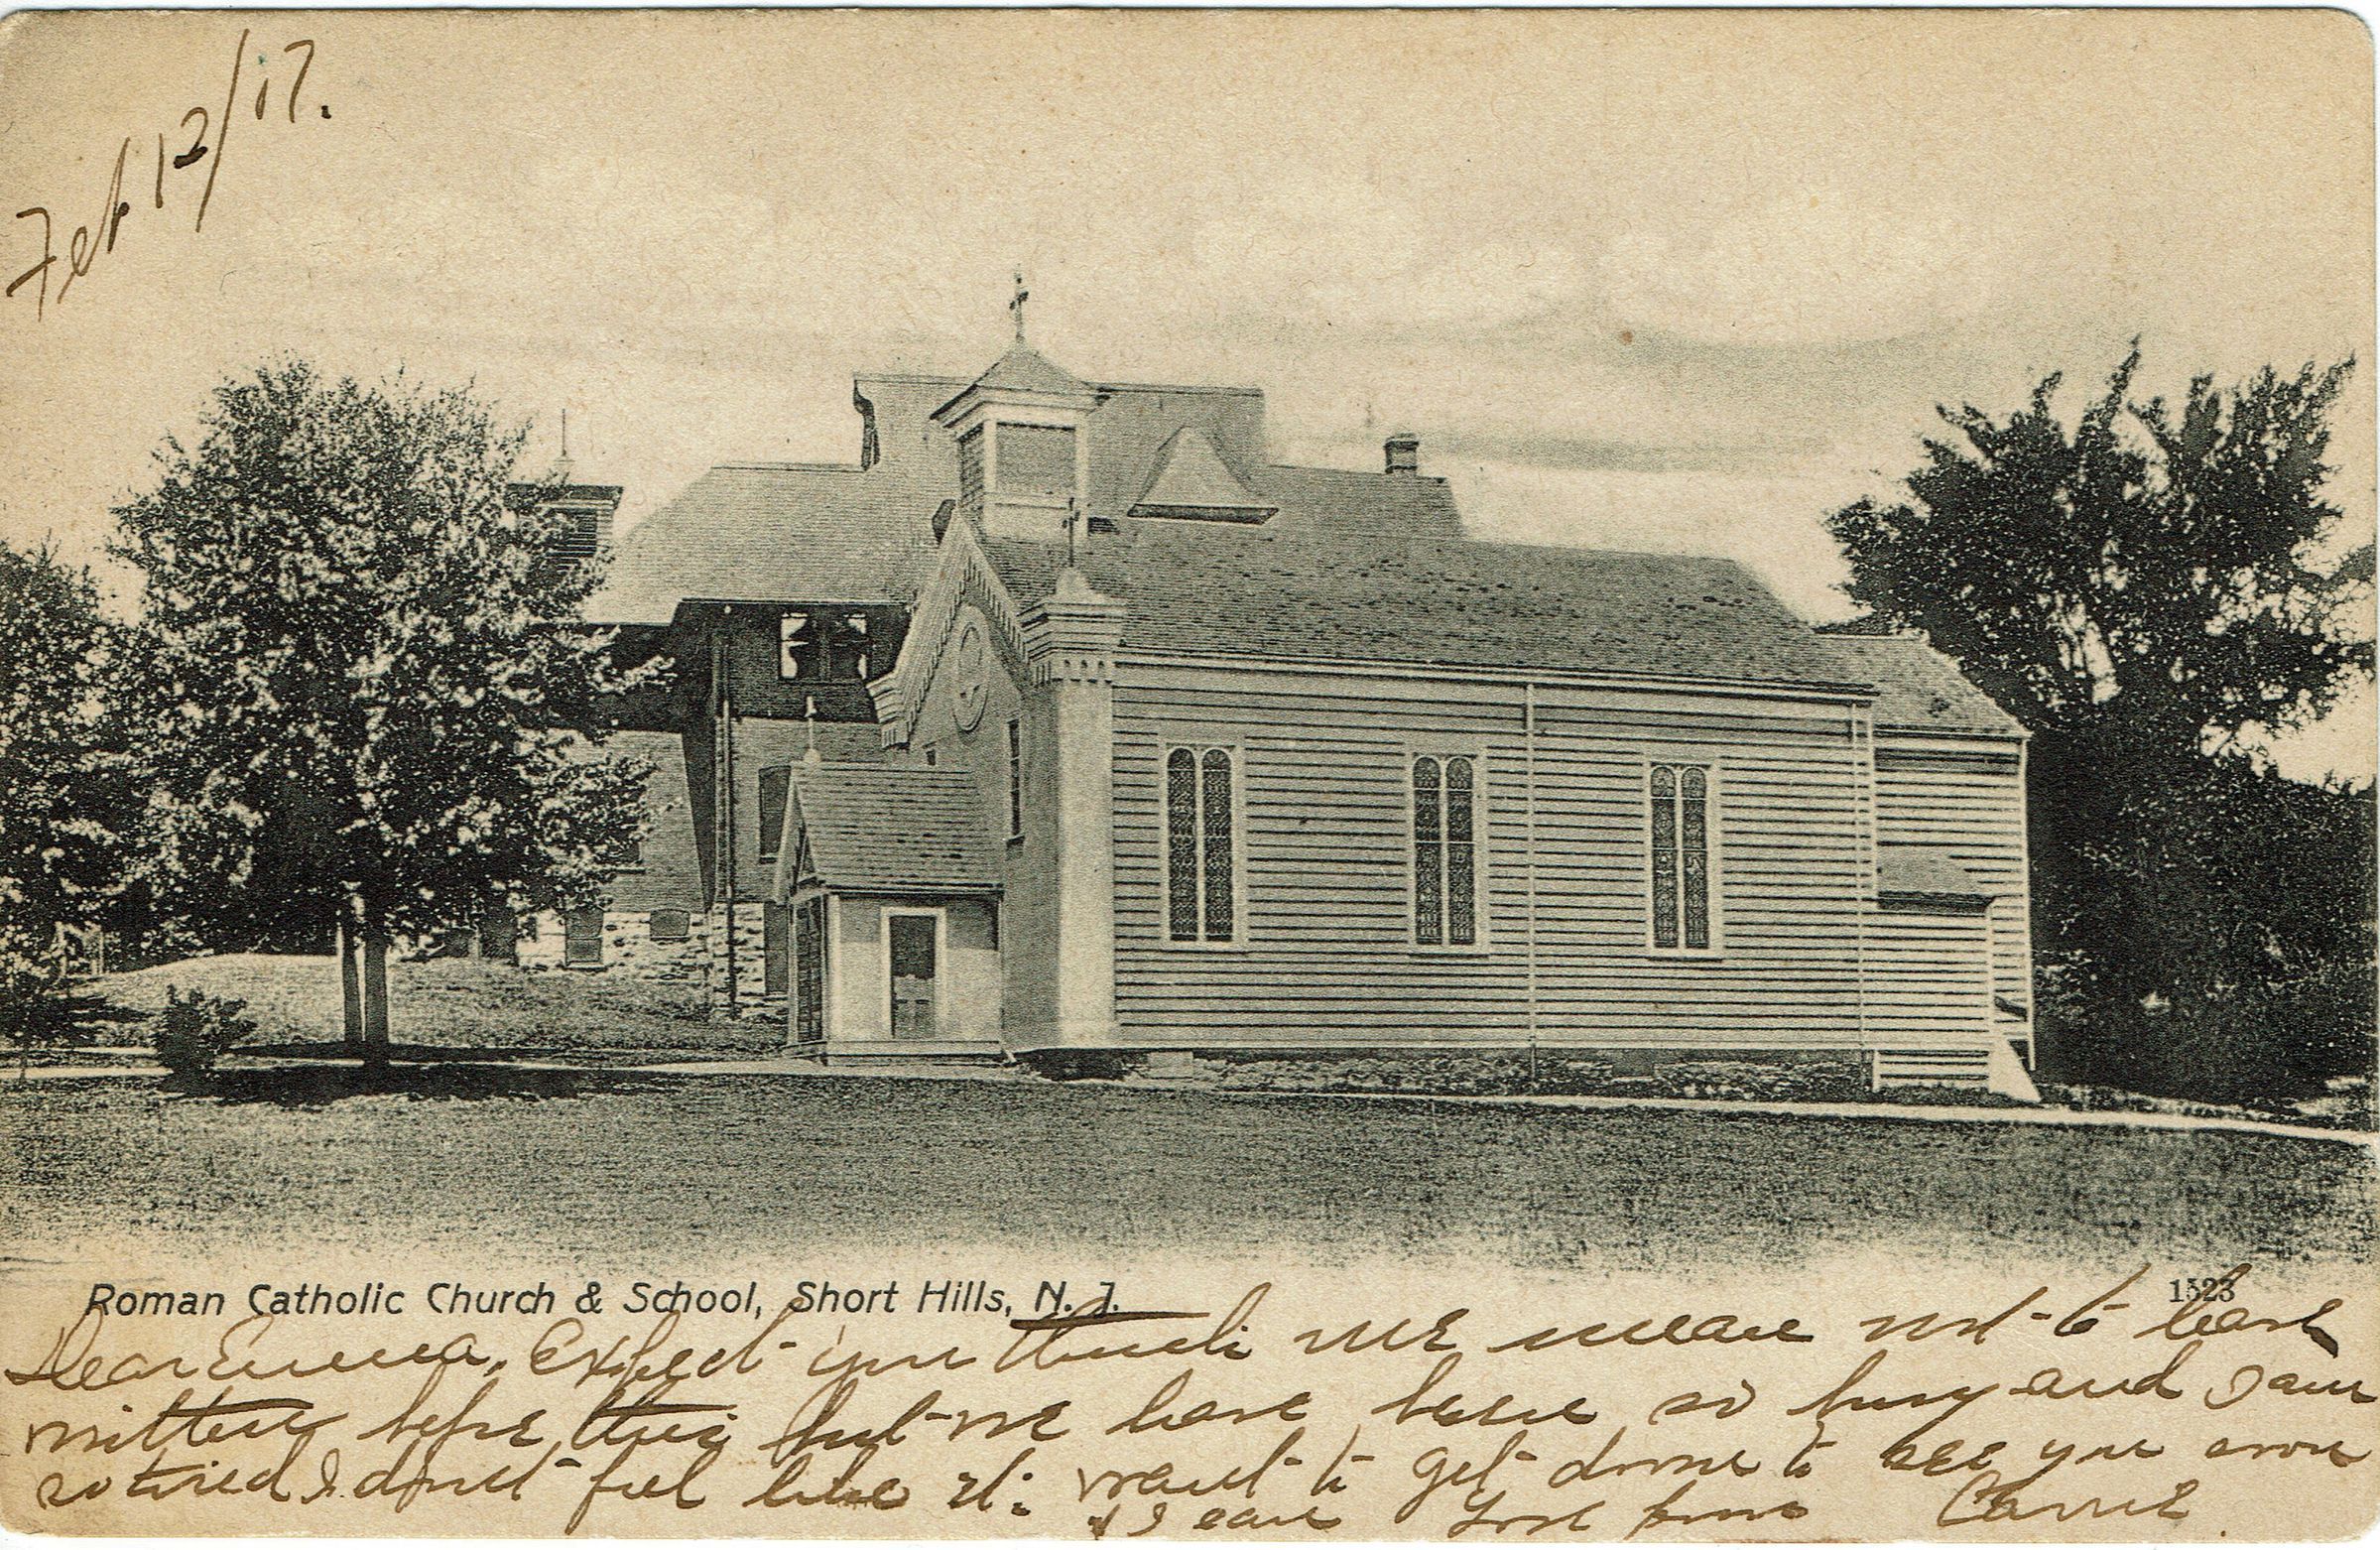 Feb 12/17.
Roman Catholic Church & School, Short Hills, N. J.
1523
Dear Emma, Expect you think we mean not to have
written before this but we have been so busy and I am
so tired I don't feel like it. want to get down to see you soon
I can Love from Carrie.